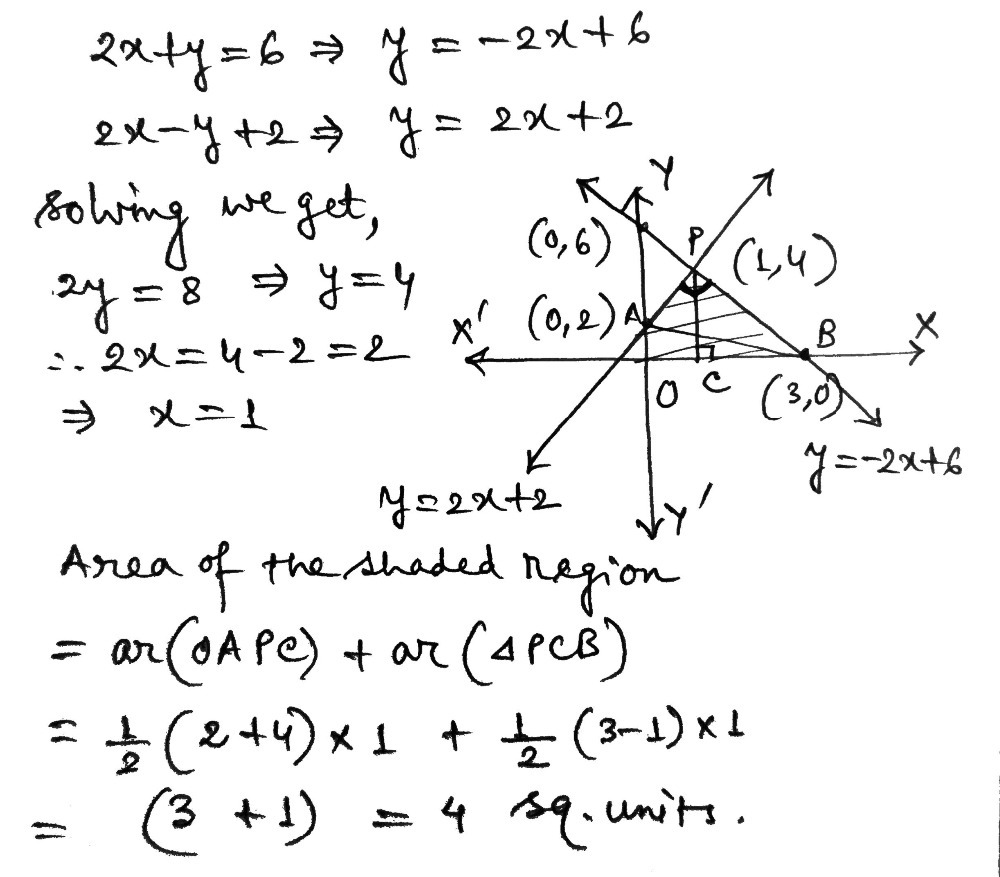 2x+y=6 ⇒ y = -2x+6
2x-y+2 ⇒ y = 2x+2
solving we get,
2y = 8 ⇒ y=4
∴ 2x = 4-2 = 2
⇒ x = 1
Y
(0,6)
P
(1,4)
X'
(0,2)
A
B
X
O
C
(3,0)
y=-2x+6
y=2x+2
Y'
Area of the shaded region
= ar(OAPC) + ar(△PCB)
= 1/2 (2+4) × 1 + 1/2 (3-1) × 1
= (3 + 1) = 4 sq. units.